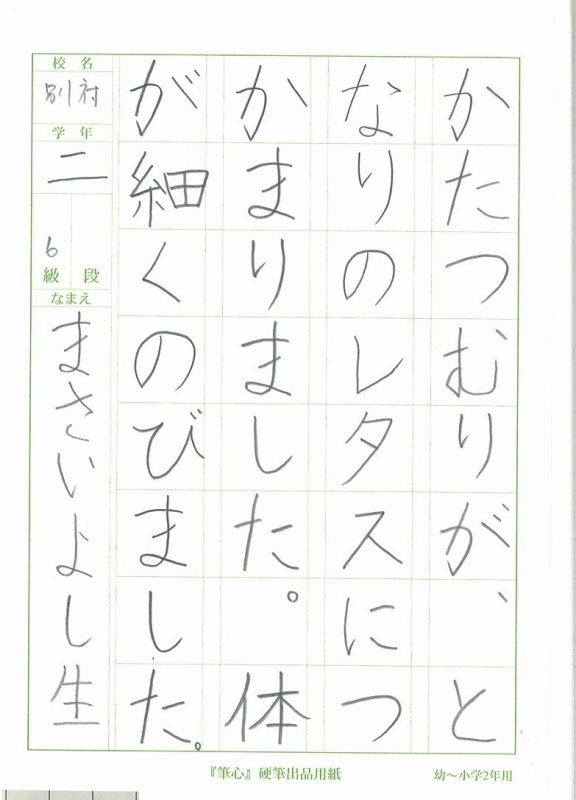 かたつむりが、と
なりのレタスにつ
かまりました。体
が細くのびました。
校名
別府
学年
二
6
級 段
なまえ
まさいよし生
『筆心』硬筆出品用紙
幼〜小学2年用